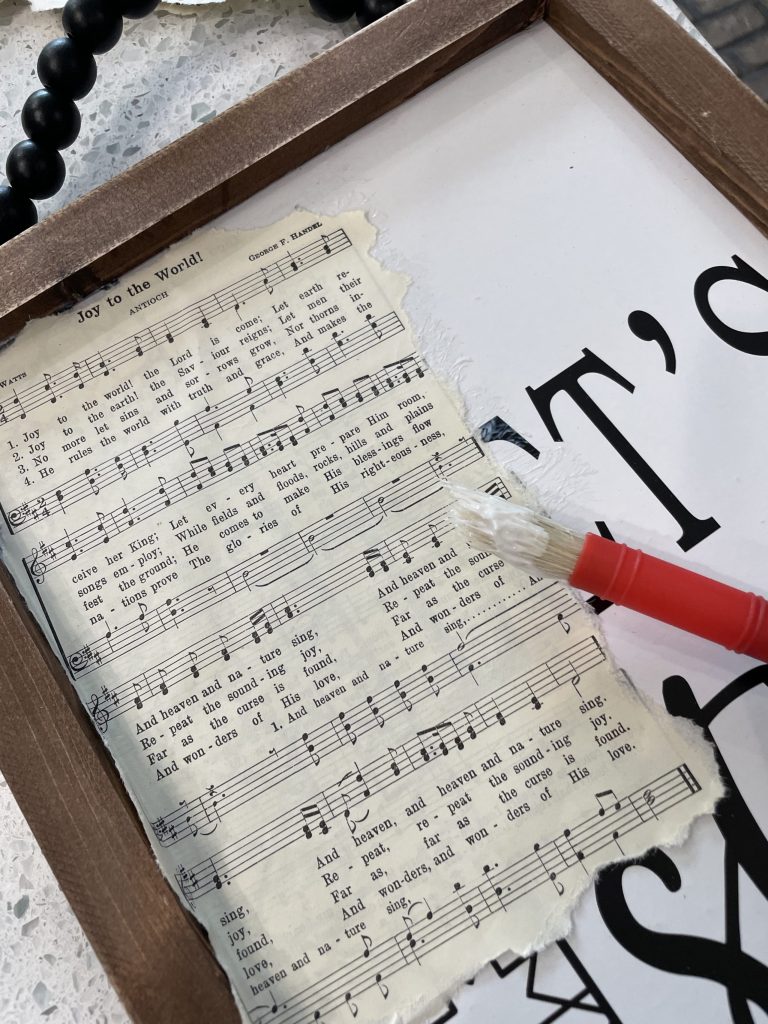 Joy to the World!
ANTIOCH
GEORGE F. HANDEL
WATTS
1. Joy to the world! the Lord is come; Let earth re-
2. Joy to the earth! the Sav - iour reigns; Let men their
3. No more let sins and sor - rows grow, Nor thorns in-
4. He rules the world with truth and grace, And makes the
ceive her King; Let ev - ery heart pre - pare Him room,
songs em - ploy; While fields and floods, rocks, hills and plains
fest the ground; He comes to make His bless - ings flow
na - tions prove The glo - ries of His right-eous - ness,
And heaven and na - ture sing, And heaven and
Re - peat the sound - ing joy, Re - peat the soun
Far as the curse is found, Far as the curse
And won - ders of His love, And won - ders of
1. And heaven and na - ture sing,
sing, And heaven, and heaven and na - ture sing.
joy, Re - peat, re - peat the sound - ing joy.
found, Far as, far as the curse is found.
love, And won-ders, and won - ders of His love.
heaven and na - ture sing,
T'S